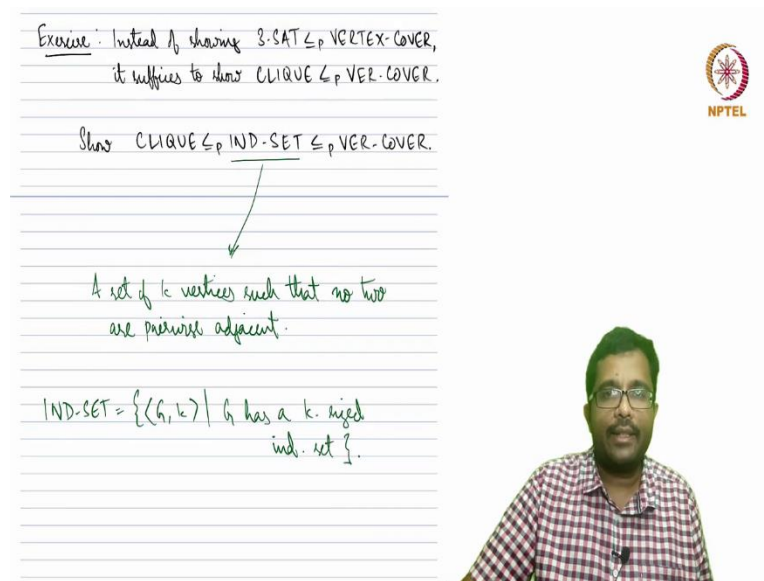 Exercise: Instead of showing 3-SAT ≤p VERTEX-COVER,
it suffices to show CLIQUE ≤p VER-COVER.
Show CLIQUE ≤p IND-SET ≤p VER-COVER.
A set of k vertices such that no two
are pairwise adjacent.
IND-SET = {⟨G, k⟩ | G has a k-sized
ind. set}.
NPTEL